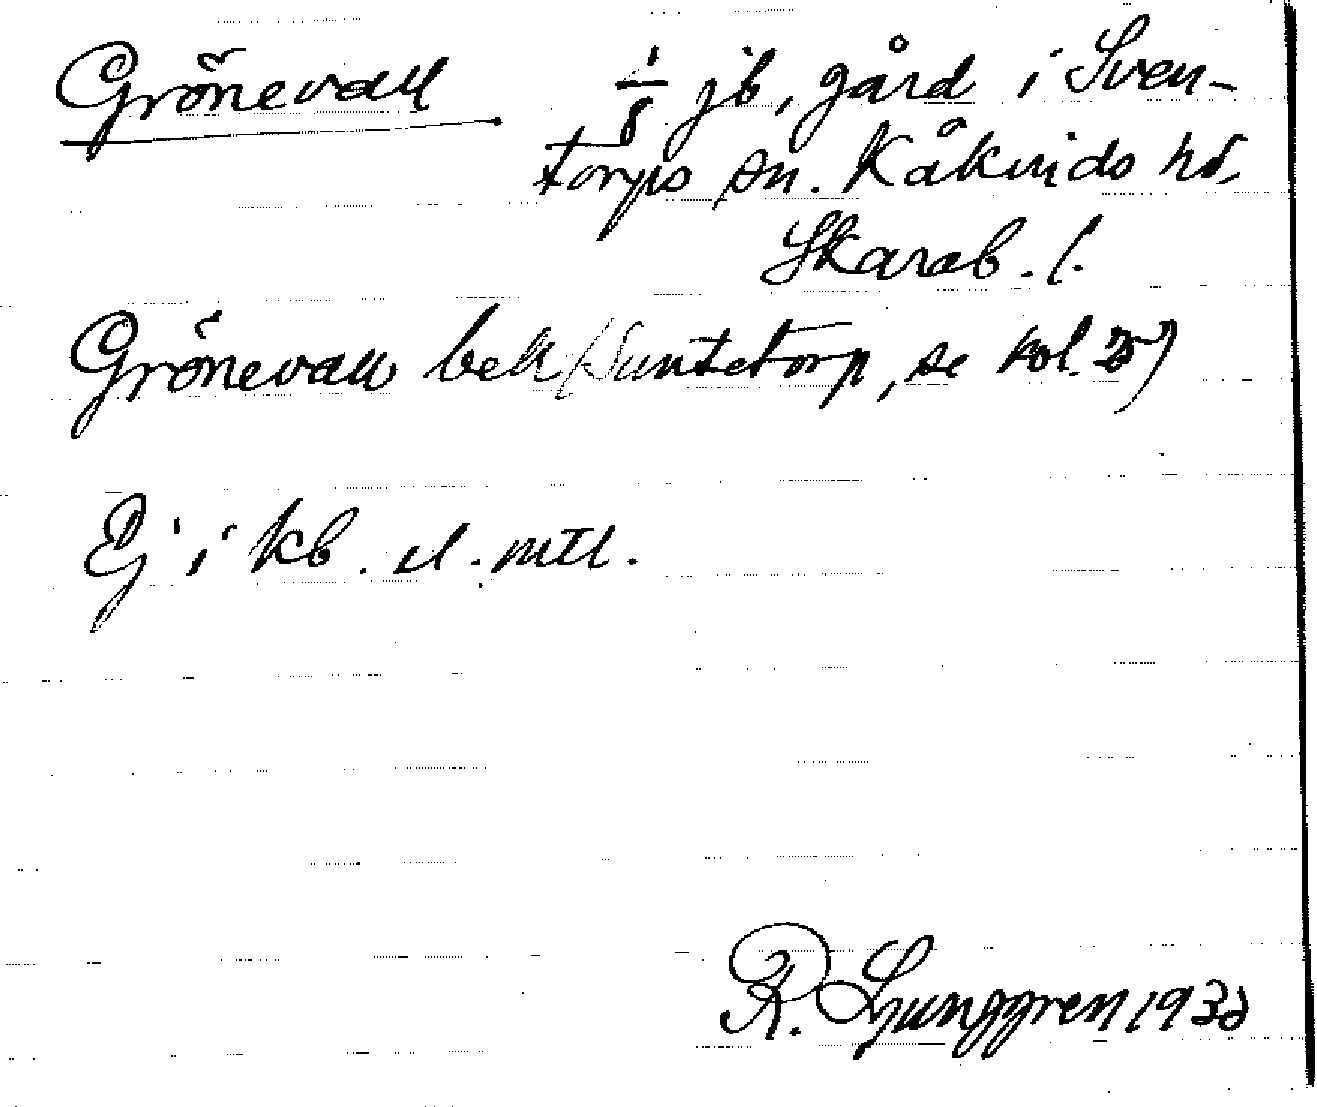 Grönevall 1/8 jb, gård i Sven-
torps sn. Kåkinds hd,
Skarab. l.
Grönevall bek (Suntetorp, se kol. 25)
Ej i kb. el. mtl.
R. Ljunggren